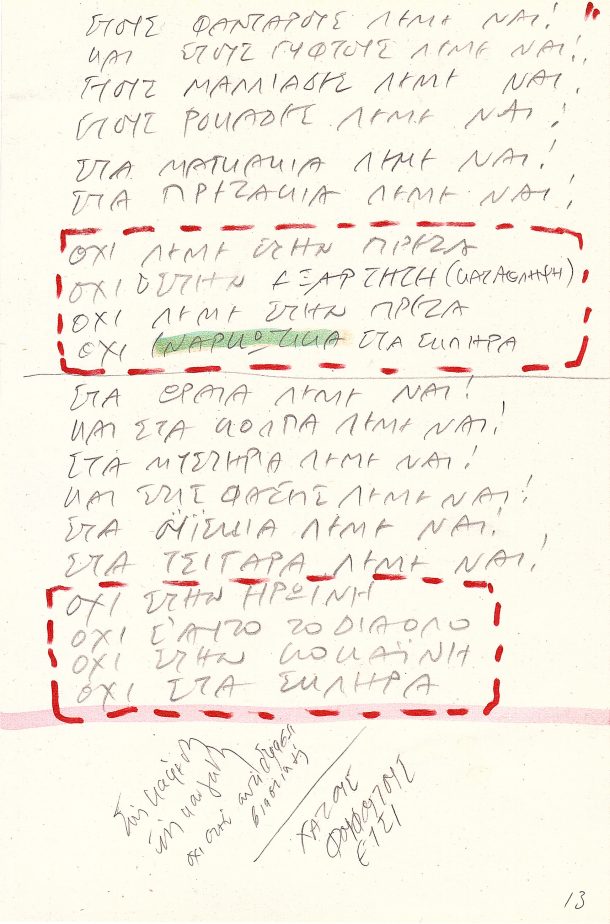 ΣΤΟΥΣ ΦΑΝΤΑΡΟΥΣ ΛΕΜΕ ΝΑΙ!
ΚΑΙ ΣΤΟΥΣ ΓΥΦΤΟΥΣ ΛΕΜΕ ΝΑΙ!
ΣΤΟΥΣ ΜΑΛΛΙΑΔΕΣ ΛΕΜΕ ΝΑΙ!
ΣΤΟΥΣ ΡΟΚΑΔΕΣ ΛΕΜΕ ΝΑΙ!
ΣΤΑ ΜΑΤΚΑΚΙΑ ΛΕΜΕ ΝΑΙ!
ΣΤΑ ΠΡΕΖΑΚΙΑ ΛΕΜΕ ΝΑΙ!
ΟΧΙ ΛΕΜΕ ΣΤΗΝ ΠΡΕΖΑ
ΟΧΙ ΣΤΗΝ ΕΞΑΡΤΗΣΗ (ΚΑΤΑΘΛΗΨΗ)
ΟΧΙ ΛΕΜΕ ΣΤΗΝ ΠΡΕΖΑ
ΟΧΙ ΝΑΡΚΩΤΙΚΑ ΣΤΑ ΣΚΛΗΡΑ
ΣΤΑ ΩΡΑΙΑ ΛΕΜΕ ΝΑΙ!
ΚΑΙ ΣΤΑ ΚΟΛΠΑ ΛΕΜΕ ΝΑΙ!
ΣΤΑ ΜΥΣΤΗΡΙΑ ΛΕΜΕ ΝΑΙ!
ΚΑΙ ΣΤΙΣ ΦΑΣΕΙΣ ΛΕΜΕ ΝΑΙ!
ΣΤΑ ΟΥΪΣΚΙΑ ΛΕΜΕ ΝΑΙ!
ΣΤΑ ΤΣΙΓΑΡΑ ΛΕΜΕ ΝΑΙ!
ΟΧΙ ΣΤΗΝ ΗΡΩΙΝΗ
ΟΧΙ Σ'ΑΥΤΟ ΤΟ ΔΙΑΟΛΟ
ΟΧΙ ΣΤΗΝ ΚΟΚΑΪΝΗ
ΟΧΙ ΣΤΑ ΣΚΛΗΡΑ
οχι στην αντίδραση
ΧΑΤΟΥΣ
ΕΤΣΙ
13